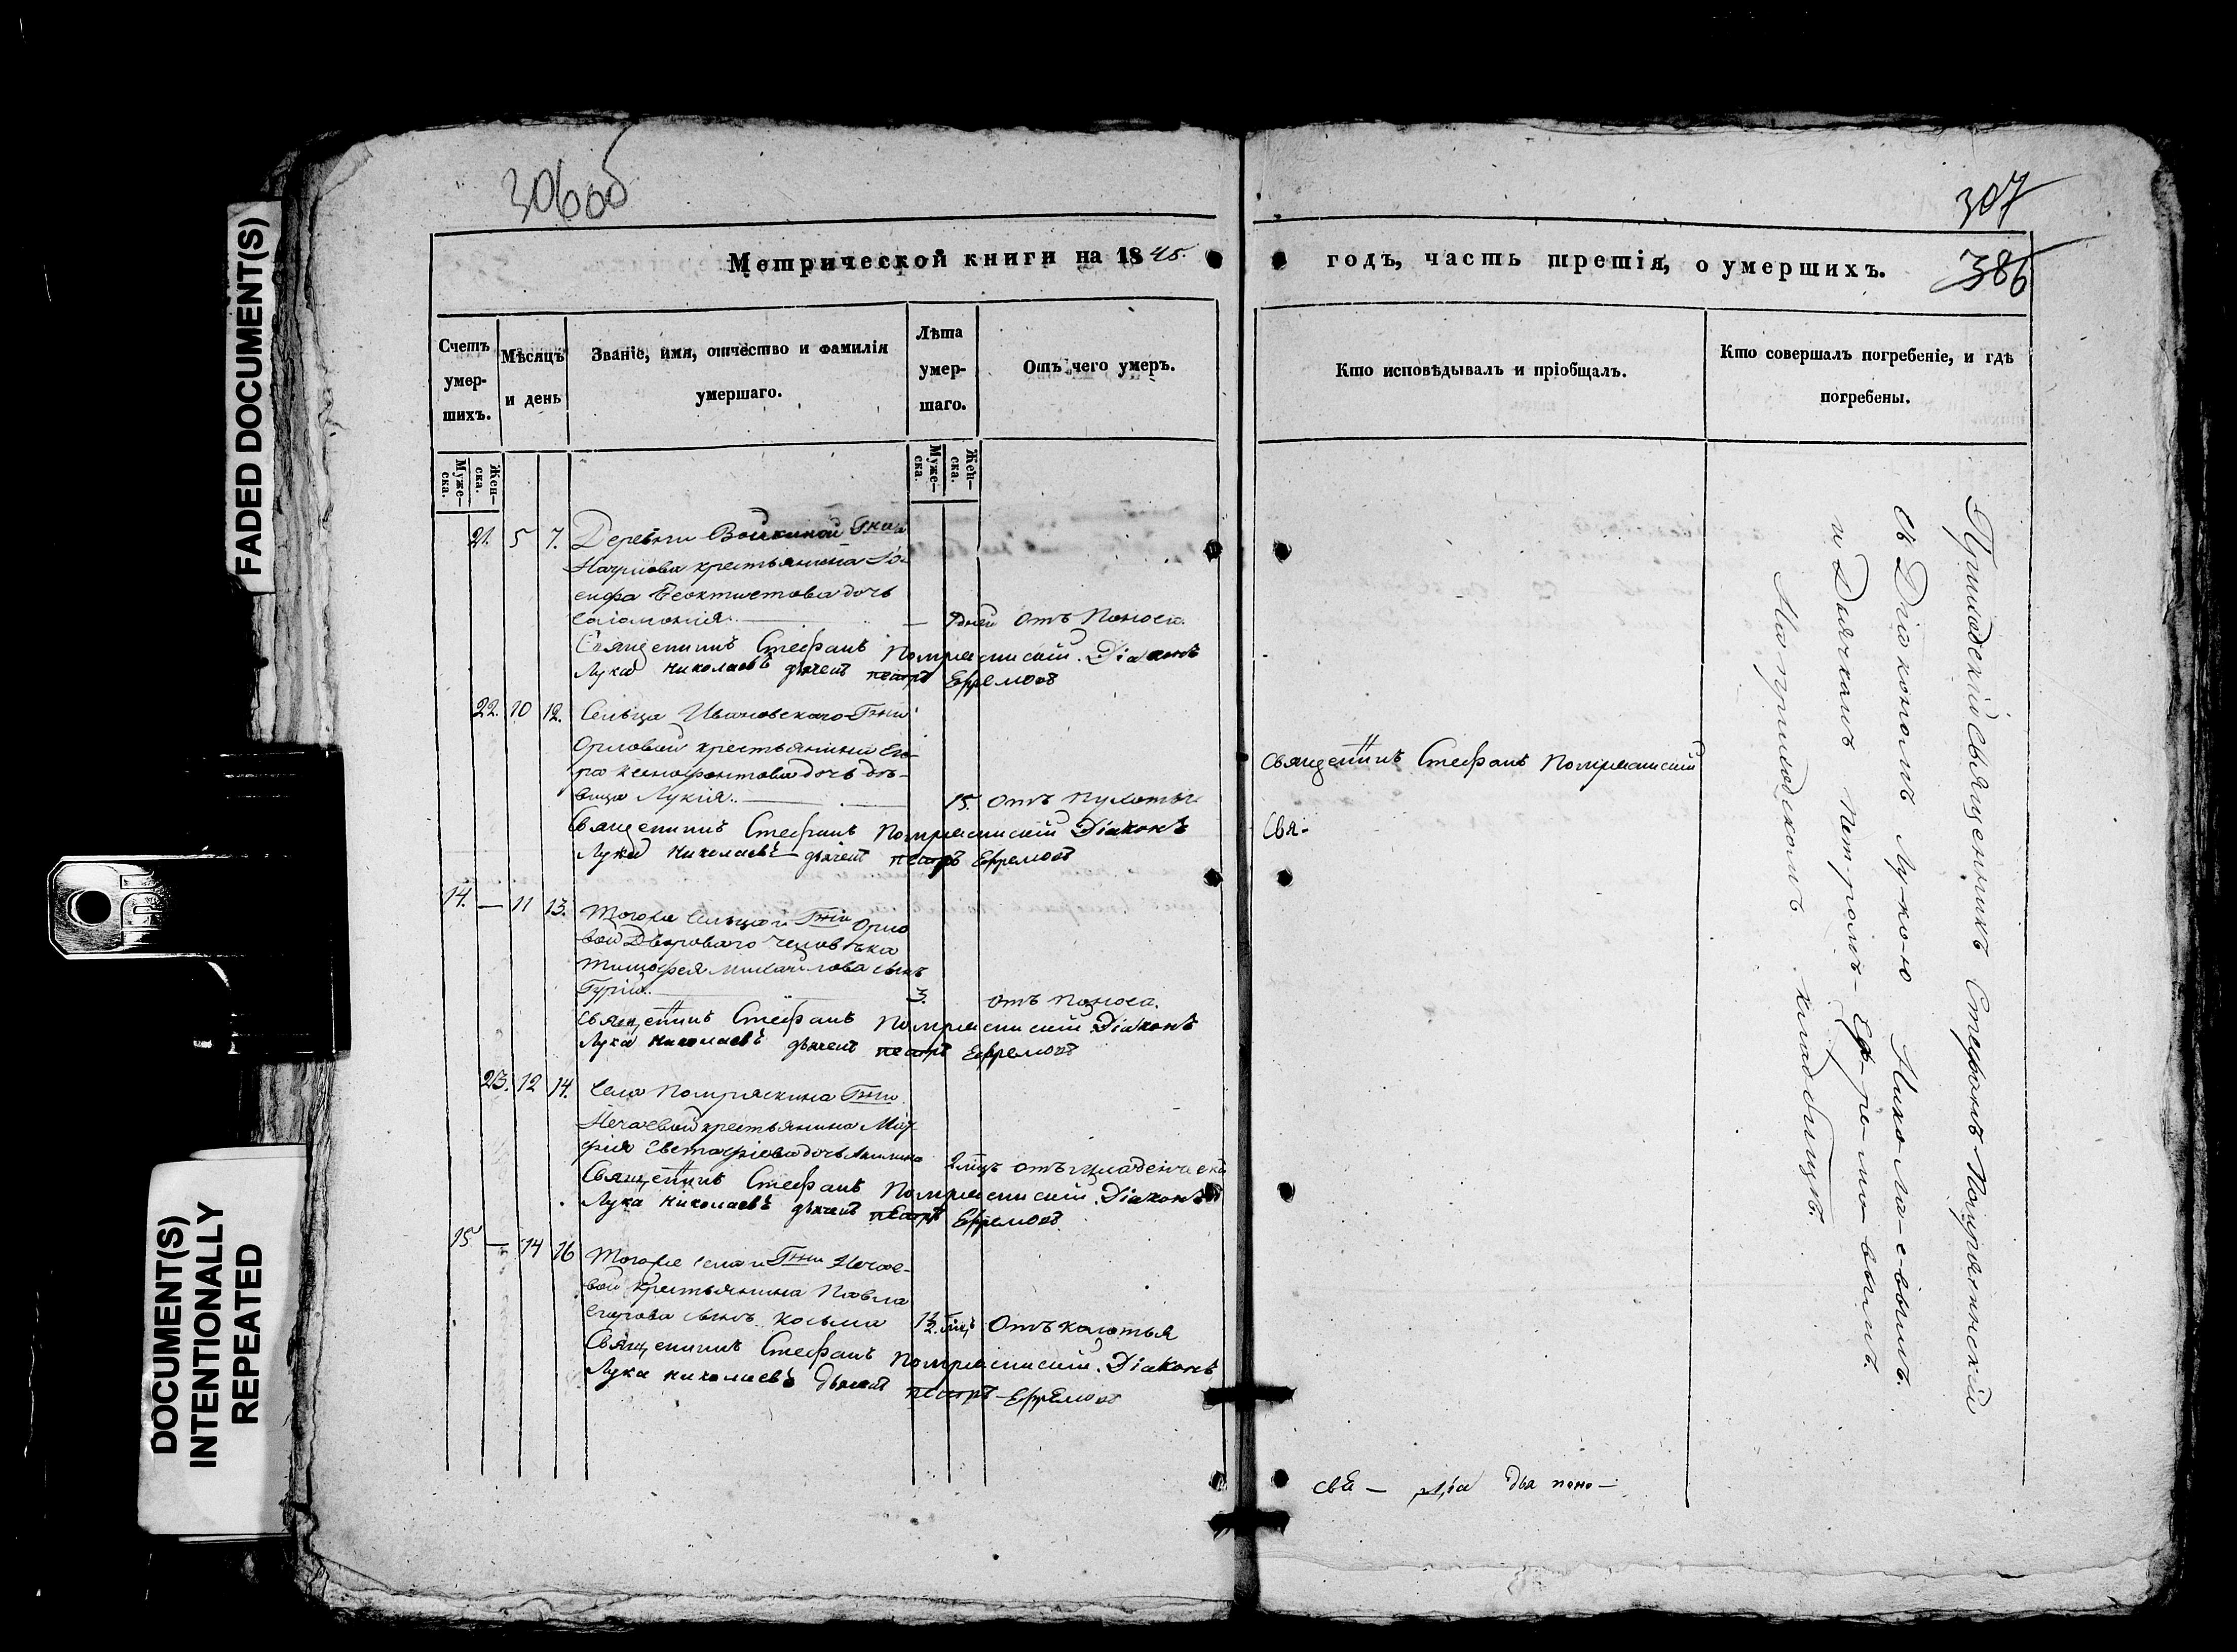 FADED DOCUMENT(S)
DOCUMENT(S)
INTENTIONALLY
REPEATED
306об
Метрической книги на 1845.
Счетъ
умер-
шихъ.
Мѣсяцъ
и день
Званіе, имя, отчество и фамилія
умершаго.
Лѣта
умер-
шаго.
Отъ чего умеръ.
Муже-
ска.
Жен-
ска.
Муже-
ска.
Жен-
ска.
21. 5 7. Деревни Войкиной Гжи
Наумова крестьянина Іо-
сифа Феоктистова дочь
Саломонія. — 7 дней отъ поноса.
Священникъ Стефанъ Потряскинскій. Діаконъ
Лука Николаевъ дьячекъ Петръ Ефремовъ
22. 10 12. Сельца Ивановскаго Гжи
Орловой крестьянина Его-
ра Ксенофонтова дочь дѣ-
вица Лукія. 15. отъ
Священникъ Стефанъ Потряскинскій Діаконъ
Лука Николаевъ дьячекъ Петръ Ефремовъ
14. — 11 13. Тогоже сельца и Гжи Орло
вой Двороваго человѣка
Тимофея Михайлова сынъ
Гурій. 3. отъ поноса.
Священникъ Стефанъ Потряскинскій Діаконъ
Лука Николаевъ дьячекъ Петръ Ефремовъ
23. 12 14. Села Потряскина Гжи
Нечаевой крестьянина
дочь
отъ младенческ
Священникъ Стефанъ Потряскинскій. Діаконъ
Лука Николаевъ дьячекъ Петръ Ефремовъ.
15 — 14 16 Тогоже села и Гжи Нечае-
вой крестьянина Павла
Егорова сынъ Косьма Отъ колотья
Священникъ Стефанъ Потряскинскій. Діаконъ
Лука Николаевъ дьячекъ Петръ Ефремовъ
307
386
годъ, часть третія, о умершихъ.
Кто исповѣдывалъ и пріобщалъ.
Кто совершалъ погребеніе, и гдѣ
погребены.
Священникъ Стефанъ Потряскинскій
Свя-
Приходскій священникъ Стефанъ Потряскинскій
съ Діакономъ Лу-ко-ю Нико-ла-е-вымъ.
и Дьячкомъ Петромъ-Еф-ре-мо-вымъ.
На приходскомъ кладбищѣ.